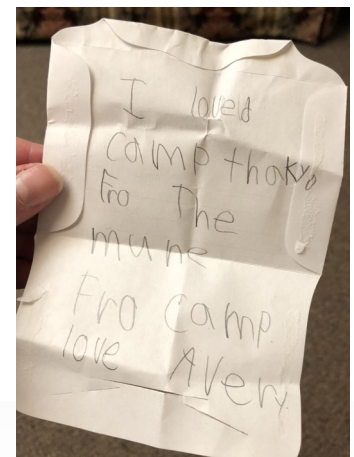 I loved
camp thakyo
Fro The
mune
Fro camp
love Avery